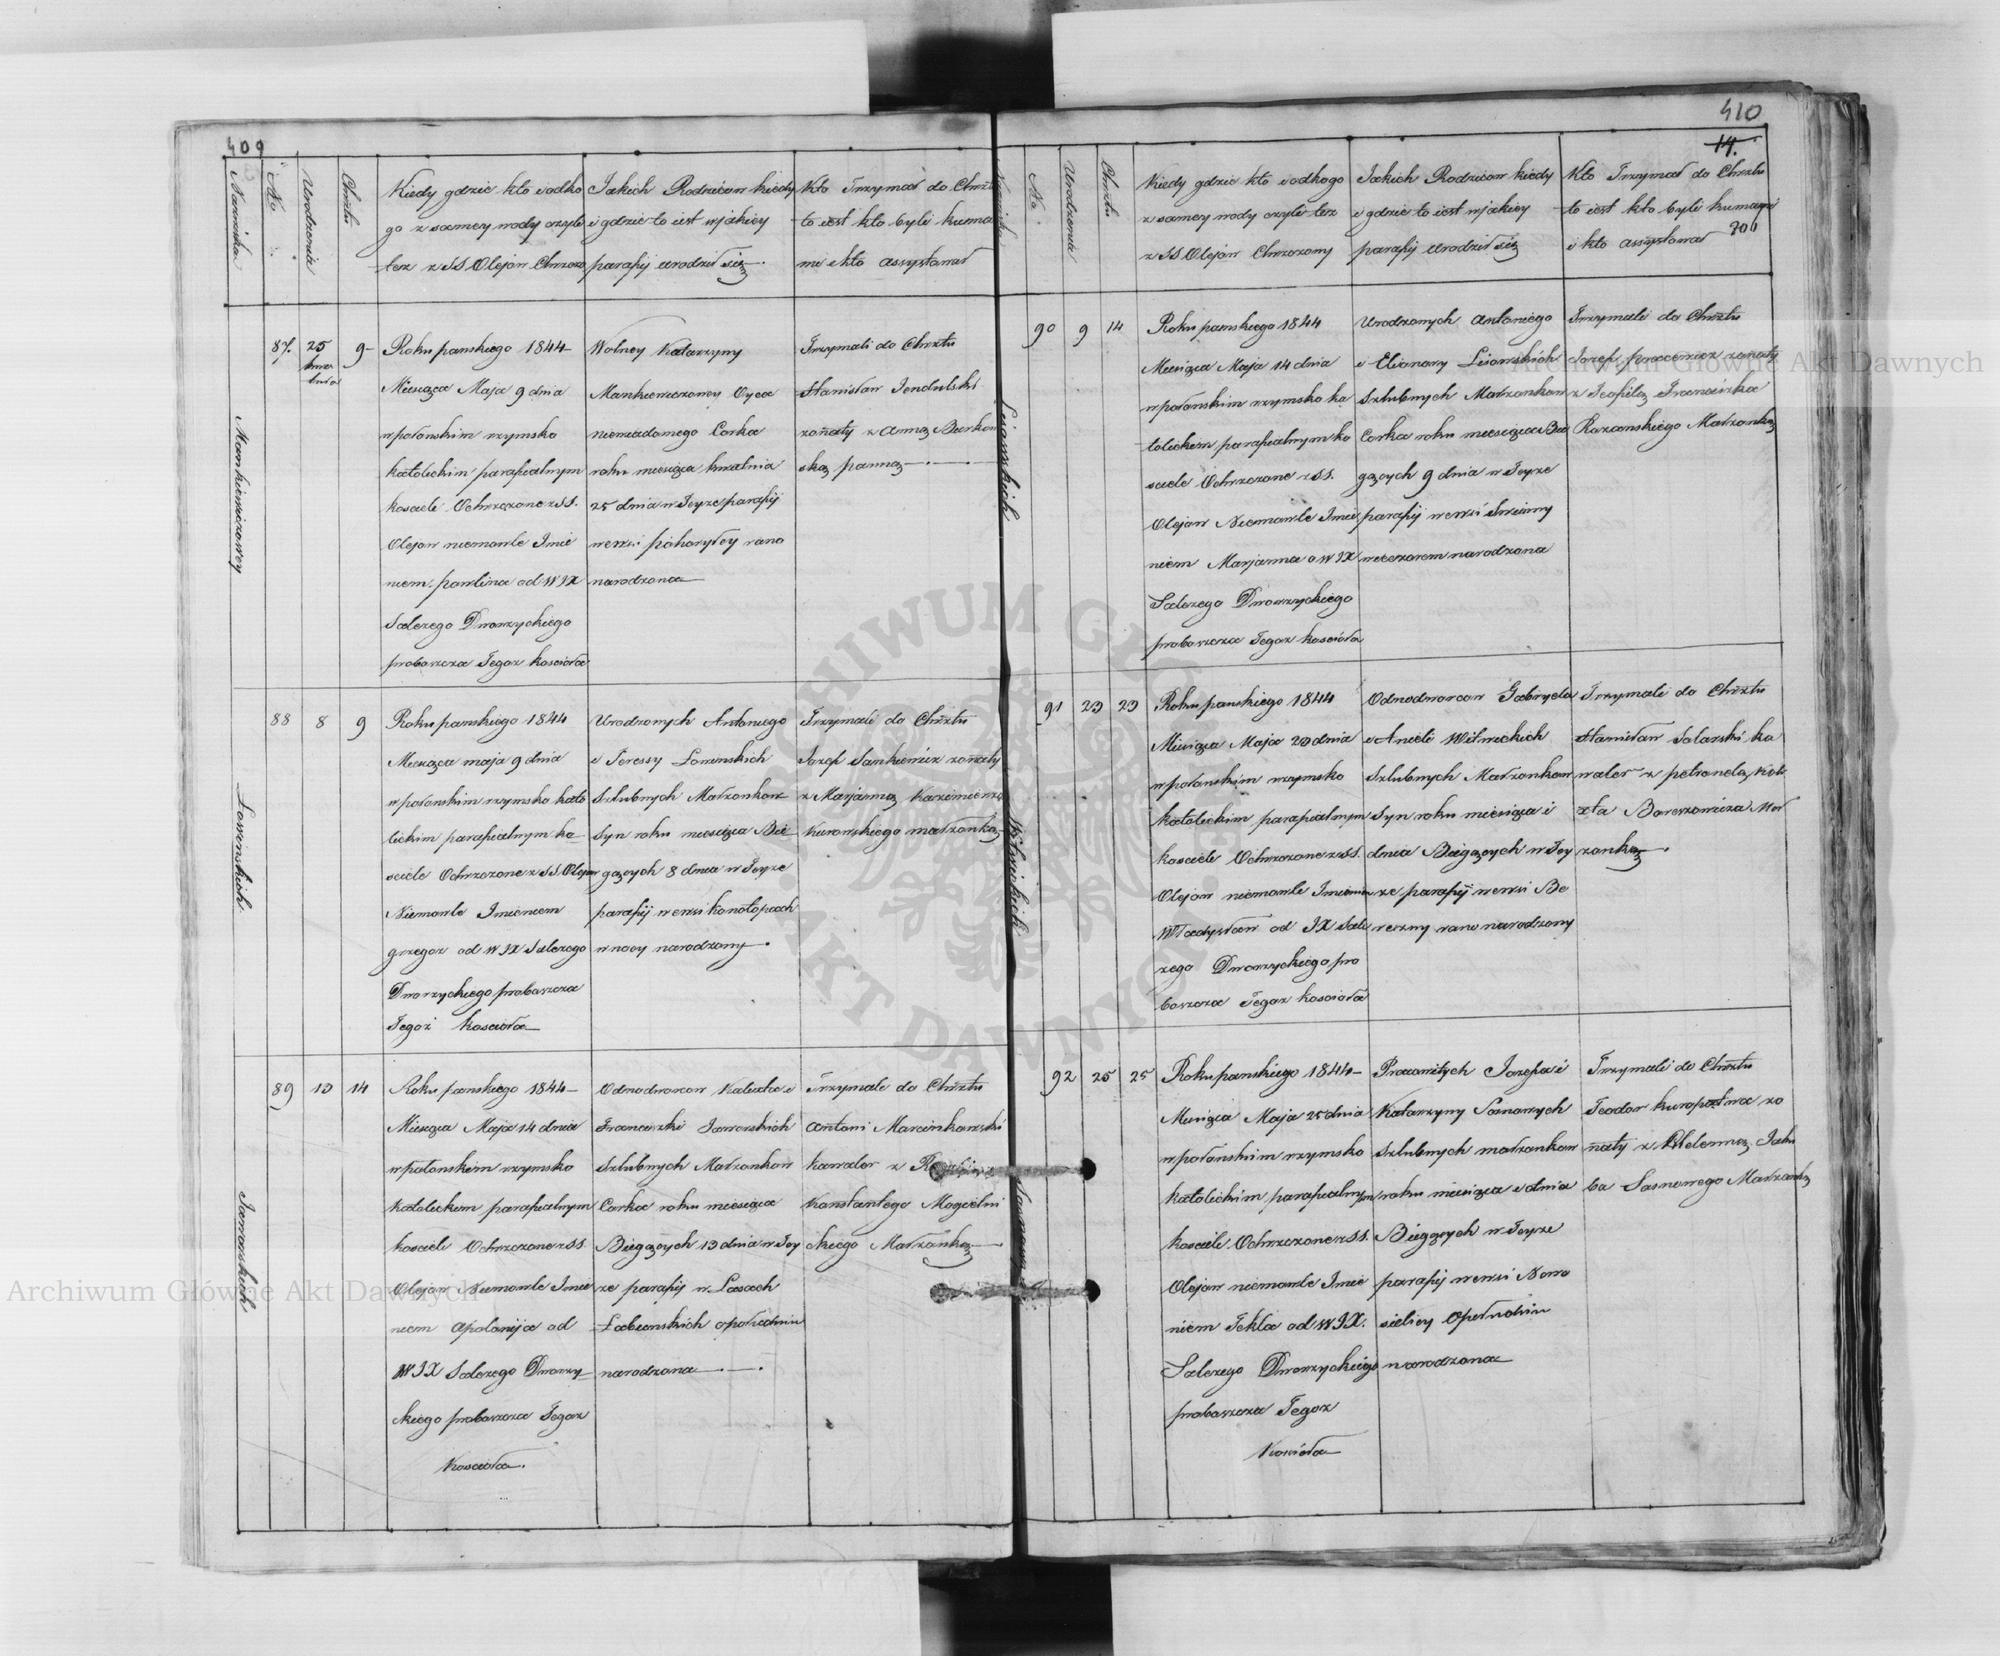 409
Nazwiska
No
Urodzenia
Chrztu
Kiedy gdzie kto i odko
go z samey wody czyli
tez z SS Olejow Chrzczo
Jakich Rodzicow kiedy
i gdzie to iest w jakiey
parafij urodził się
Kto Trzymał do Chrztu
to iest kto byli kuma
mi i kto assystował
Mankiewiczowey
87.
25
kwie
tnia
9
Roku panskiego 1844
Miesiąca Maja 9 dnia
w połonskim rzymsko
katolickim parafialnym
kosciele Ochrzczone z SS.
Olejow niemowle Imie
niem paulina od W JX
Salezego Dworzyckiego
proboszcza Tegoz koscioła
Wolney Katarzyny
Mankiewiczowey Oyca
niewiadomego Corka
roku miesiąca kwietnia
25 dnia w Teyze parafij
we wsi pohoryłey rano
narodzona
Trzymali do Chrztu
Stanisław Jendulski
zonaty z Anną Burkow
ską panną
Łowinskich
88
8
9
Roku panskiego 1844
Miesiąca maja 9 dnia
w połonskim rzymsko kato
lickim parafialnym ko
sciele Ochrzczone z SS Olejow
Niemowle Imieniem
grzegoz od W JX Salezego
Dworzyckiego proboszcza
Tegoż kosciola
Urodzonych Antoniego
i Teressy Łowinskich
Szlubnych Małzonkow
Syn roku miesiąca Bie
gących 8 dnia w Teyze
parafij we wsi konotopach
w nocy narodzony
Trzymali do Chrztu
Jozef Sankiewicz zonaty
z Marjanną Kazimierza
Kurowskiego małzonką
Jaworskich
89
13
14
Roku panskiego 1844
Miesiąca Maja 14 dnia
w połonskim rzymsko
katolickim parafialnym
kosciele Ochrzczone z SS
Olejow Niemowle Imie
niem Apolonija od
W JX Salezego Dworzy
ckiego proboszcza Tegoz
kosciola.
Odnodworcow Kalixta i
Franciszki Jaworskich
Szlubnych Małzonkow
Corka roku miesiąca
Biegących 13 dnia w Tey
ze parafij w Lasach
Łabunskich o południu
narodzona
Trzymali do Chrztu
Antoni Marcinkowski
kawaler z
Konstantego Mogielni
ckiego Małzonką
410
14.
Nazwiska
No
Urodzenia
Chrztu
Kiedy gdzie kto i odkogo
z samey wody czyli tez
z SS Olejow Chrzczony
Jakich Rodzicow kiedy
i gdzie to iest w jakiey
parafij urodził się
Kto Trzymał do Chrztu
to iest kto byli kumami
i kto assystował
Lisowskich
90
9
14
Roku panskiego 1844
Miesiąca Maja 14 dnia
w połonskim rzymsko ka
tolickim parafialnym ko
sciele Ochrzczone z SS.
Olejow Niemowle Imie
niem Marjanna o W JX
Salezego Dworzyckiego
proboszcza Tegoz kosciola
Urodzonych Antoniego
i Elionory Lisowskich
Szlubnych Małzonkow
Corka roku miesiąca Bie
gących 9 dnia w Teyze
parafij we wsi
wieczorem narodzona
Trzymali do Chrztu
Jozef zonaty
z Teofilą Franciszka
Małzonką
Witwickich
91
23
23
Roku panskiego 1844
Miesiąca Maja 23 dnia
w połonskim rzymsko
katolickim parafialnym
kosciele Ochrzczone z SS.
Olejow niemowle Imieniem
Władysław od JX Sale
zego Dworzyckiego pro
boszcza Tegoz kosciola
Odnodworcow Gabryela
i Anieli Witwickich
Szlubnych Małzonkow
Syn roku miesiąca i
dnia Biegących w Tey
ze parafij we wsi Be
rezny rano narodzony
Trzymali do Chrztu
Stanisław Solarski ka
waler z petronelą
Małz
zonką
Sasnowych
92
25
25
Roku panskiego 1844
Miesiąca Maja 25 dnia
w połonskim rzymsko
katolickim parafialnym
kosciele Ochrzczone z SS.
Olejow niemowle Imie
niem Tekla od W JX.
Salezego Dworzyckiego
proboszcza Tegoz
kosciola
Pracowitych Jozefa i
Katarzyny Sasnowych
Szlubnych małzonkow
roku miesiąca i dnia
Biegących w Teyze
parafij we wsi Nowo
sielicy o południu
narodzona
Trzymali do Chrztu
Teodor kuropatwa zo
naty z Heleną Jaku
ba Sasnowego Małzonką
Archiwum Główne Akt Dawnych
Archiwum Główne Akt Dawnych